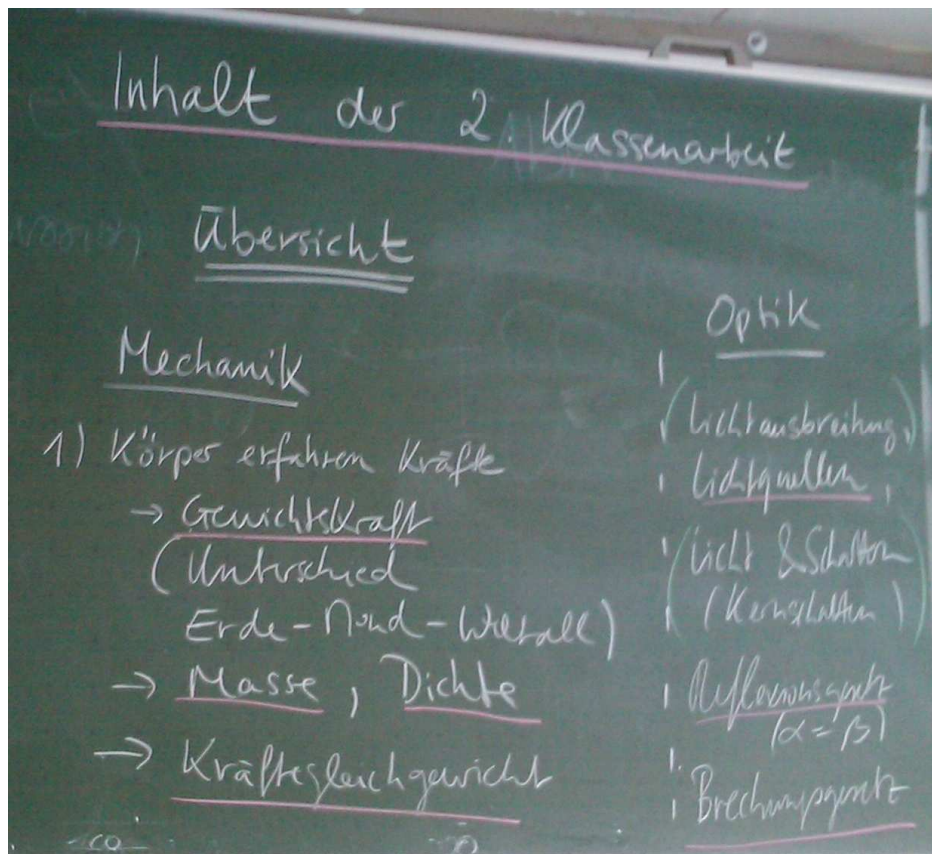 Inhalt der 2. Klassenarbeit
Übersicht
Mechanik
1) Körper erfahren Kräfte
→ Gewichtskraft
(Unterschied
Erde - Mond - Weltall)
→ Masse, Dichte
→ Kräftegleichgewicht
Optik
(Lichtausbreitung,)
Lichtquellen,
(Licht & Schatten
(Kernschatten))
Reflexionsgesetz
(α = β)
Brechungsgesetz